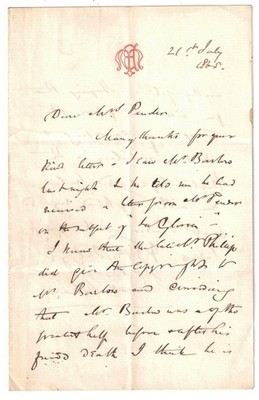 21st July
1865.
Dear Mrs Pender
Many thanks for your
kind letter. I saw Mr Barlow
last night & he told me he had
received a letter from Mr Pender
on the subject of "La Gloria"
I know that the late Mr Phillip
did give the copyright to
Mr Barlow and considering
that Mr Barlow was of the
greatest help before & after his
friend's death I think he is